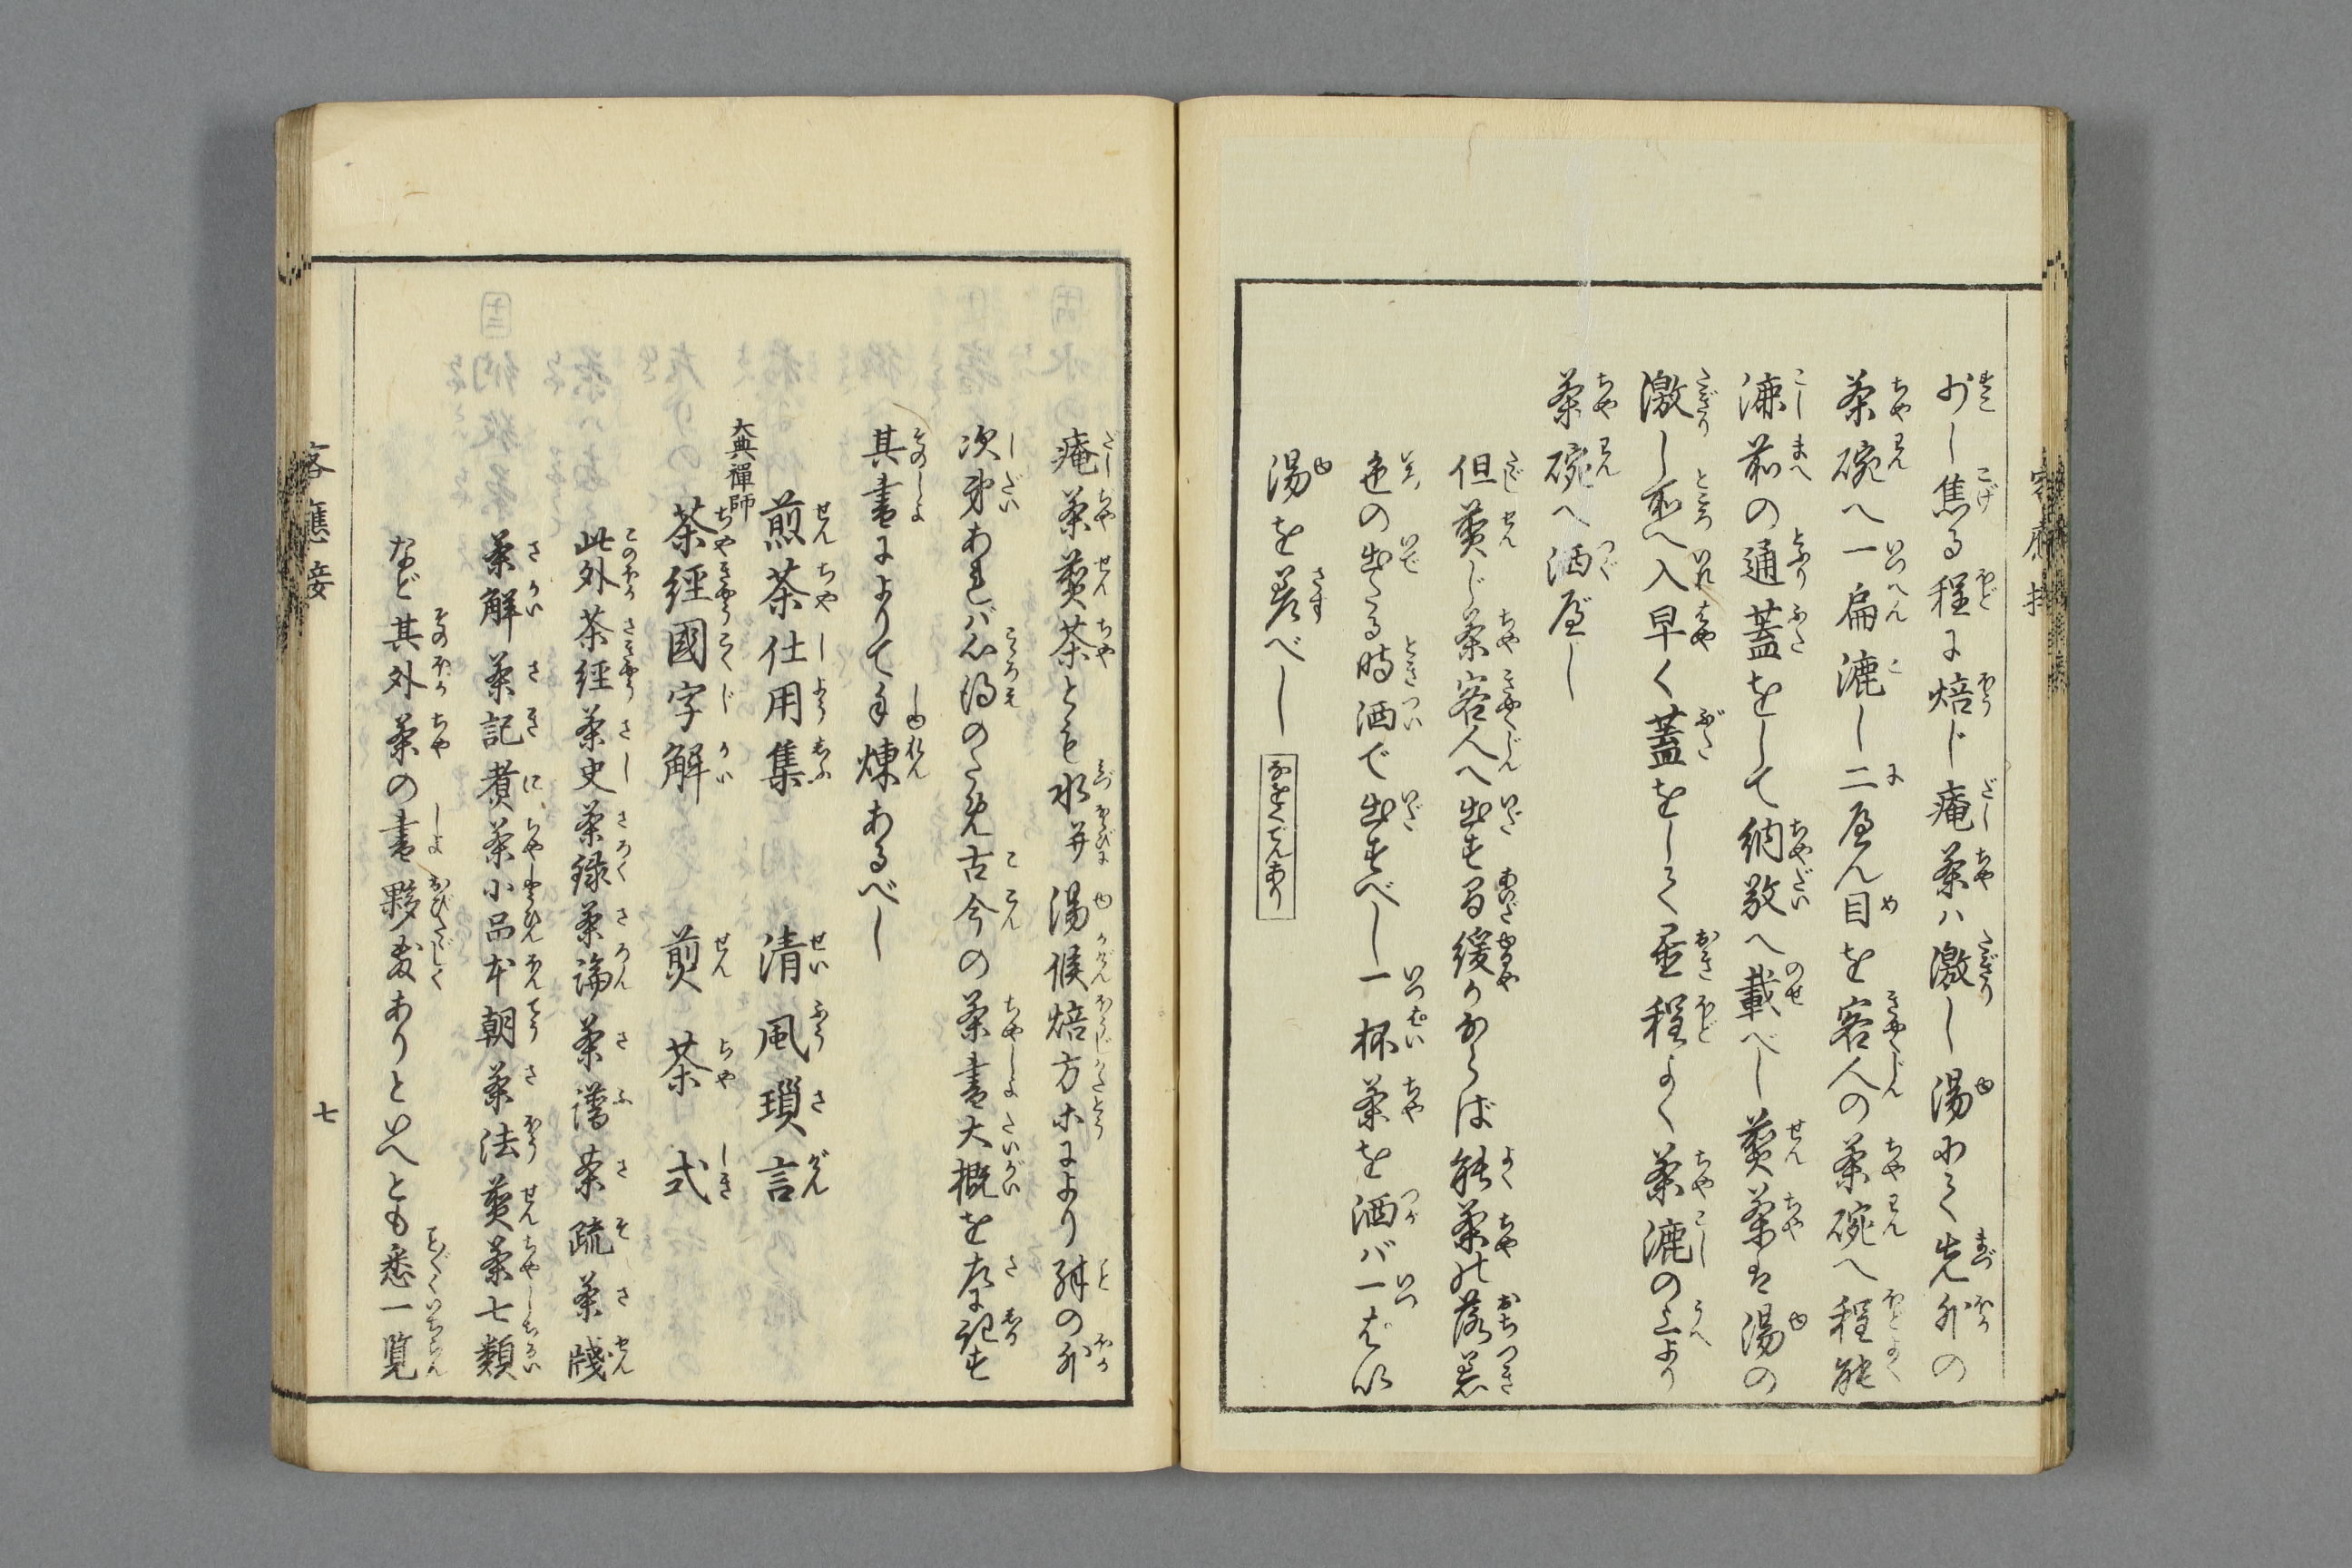 少し焦る程に焙じ庵茶ハ激し湯にて先外の
茶碗へ一扁漉し二へん目を客人の茶碗へ程能
漉前の通蓋をして納敬へ載べし煎茶は湯の
激し所へ入早く蓋をして置程よく茶漉の上より
茶碗へ洒べし
但煎じ茶客人へ出す間緩かならば能茶の落着
色の出たる時洒で出すべし一杯茶を洒バ一はい
湯を差べし
なをくでんあり
庵茶煎茶とも水并湯候焙方等により殊の外
次第あれバ心得のため古今の茶書大概を左に記す
其書によりて手煉あるべし
煎茶仕用集 清風瑣言
大典禪師
茶經國字解 煎茶式
此外茶経茶史茶録茶論茶譜茶疏茶牋
茶解茶記煑茶小品本朝茶法煎茶七類
など其外茶の書夥敷ありといへとも悉一覧
客應接
七